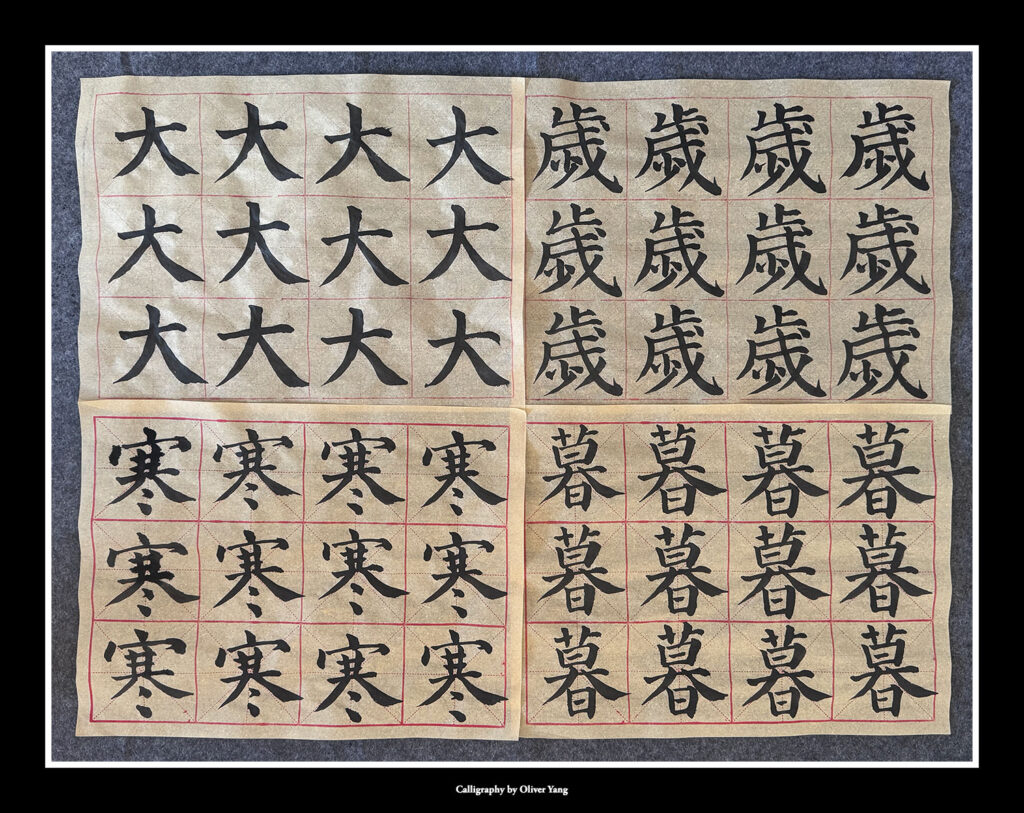 大大大大
大大大大
大大大大
歳歳歳歳
歳歳歳歳
歳歳歳歳
寒寒寒寒
寒寒寒寒
寒寒寒寒
暮暮暮暮
暮暮暮暮
暮暮暮暮
Calligraphy by Oliver Yang